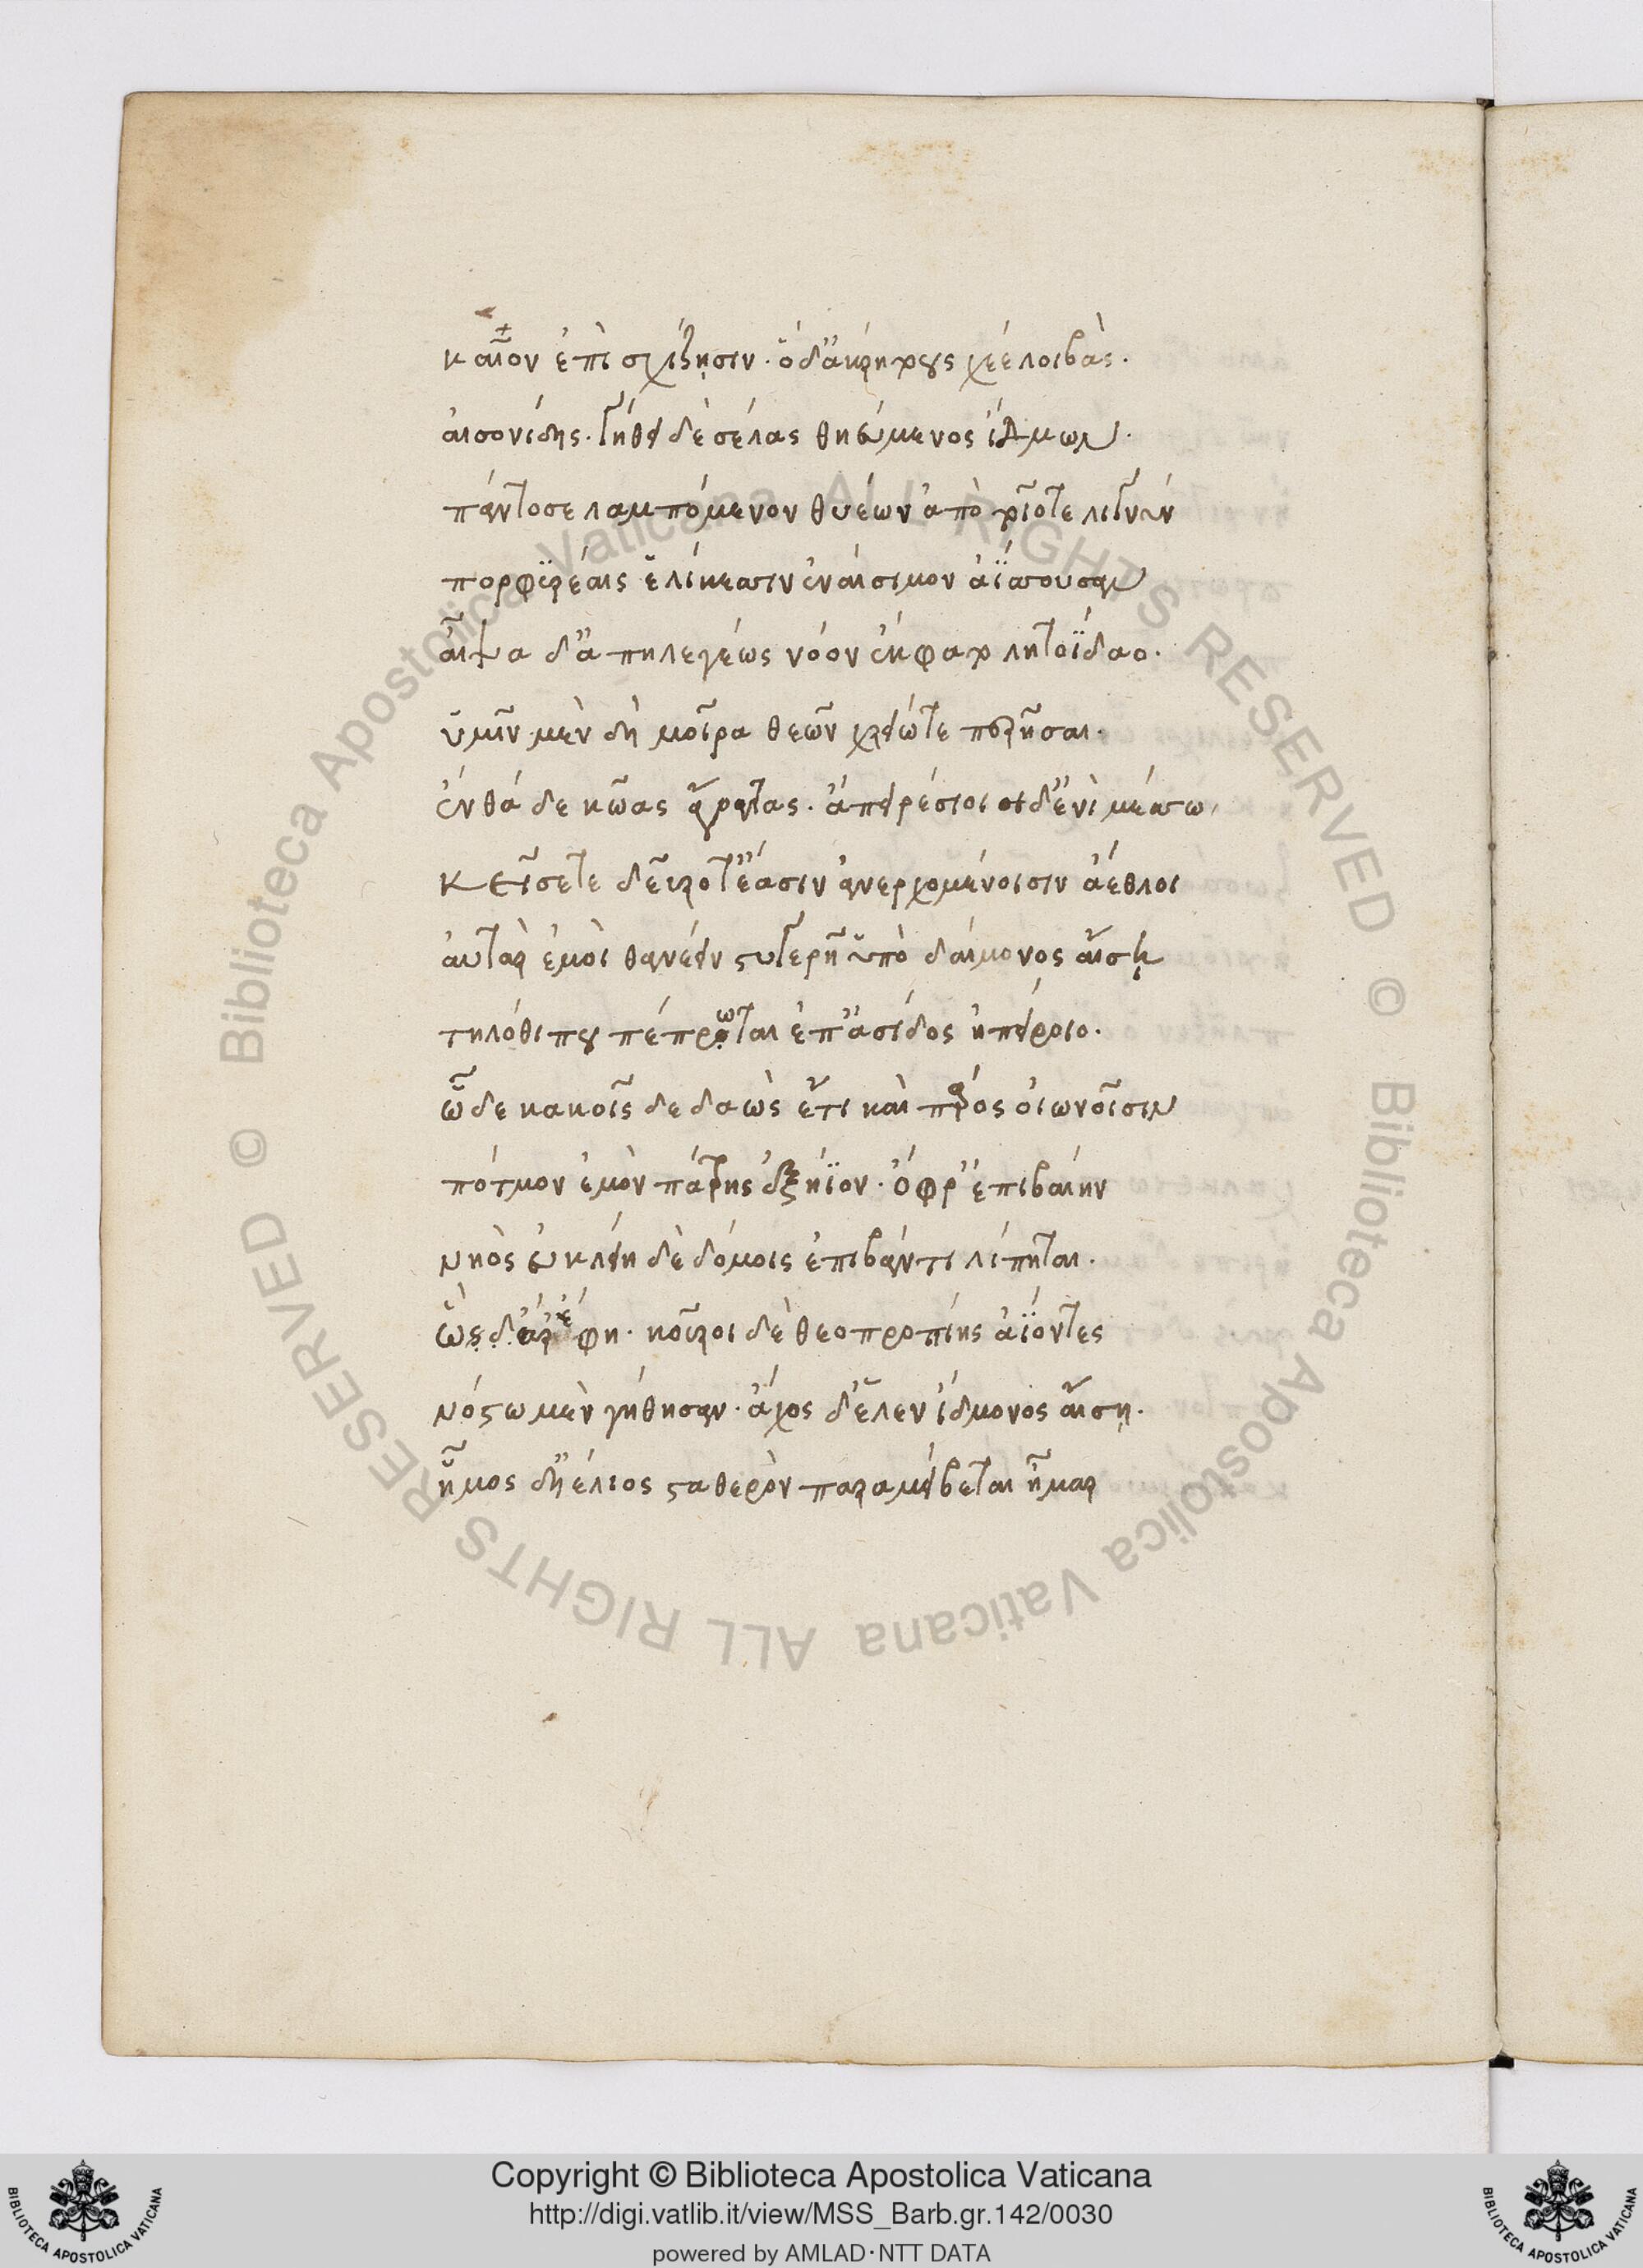 καῖον ἐπὶ σχίζῃσιν· ὁ δ' ἀκρήτους χέε λοιβὰς·
αἰσονίδης· γήθει δὲ σέλας θηεύμενος ἴδμων·
πάντοσε λαμπόμενον θυέων ἀπὸ τοῖό τε λιγνὺν
πορφυρέαις ἑλίκεσσιν ἐναίσιμον ἀΐσσουσαν
αἶψα δ' ἀπηλεγέως νόον ἔκφατο λητοΐδαο·
ὑμῖν μὲν δὴ μοῖρα θεῶν χρειώ τε περῆσαι·
ἐνθάδε κῶας ἄγοντας· ἀπειρέσιοι οἱ δ' ἐνὶ μέσσω
κεῖσέ τε δεῦρό τ' ἔασιν ἀνερχομένοισιν ἄεθλοι
αὐτὰρ ἐμοὶ θανέειν στυγερῆ ὑπὸ δαίμονος αἴσῃ
τηλόθι που πέπρωται ἐπ' ἀσίδος ἠπείροιο·
ὧδε κακοῖς δεδαὼς ἔτι καὶ πάρος οἰωνοῖσιν
πότμον ἐμὸν πάτρης ἐξήϊον· ὄφρ' ἐπιβαίην
νηὸς ἐυκλείη δὲ δόμοις ἐπιβάντι λίπηται·
ὣς δ' ἄρ' ἔφη· κοῦροι δὲ θεοπροπίης ἀΐοντες
νόστω μὲν γήθησαν· ἄχος δ' ἕλεν ἴδμονος αἴσῃ·
ἦμος δ' ἠέλιος σταθερὸν παραμείβεται ἦμαρ
Copyright © Biblioteca Apostolica Vaticana
http://digi.vatlib.it/view/MSS_Barb.gr.142/0030
powered by AMLAD·NTT DATA
BIBLIOTECA APOSTOLICA VATICANA
BIBLIOTECA APOSTOLICA VATICANA
© Biblioteca Apostolica Vaticana ALL RIGHTS RESERVED
© Biblioteca Apostolica Vaticana ALL RIGHTS RESERVED